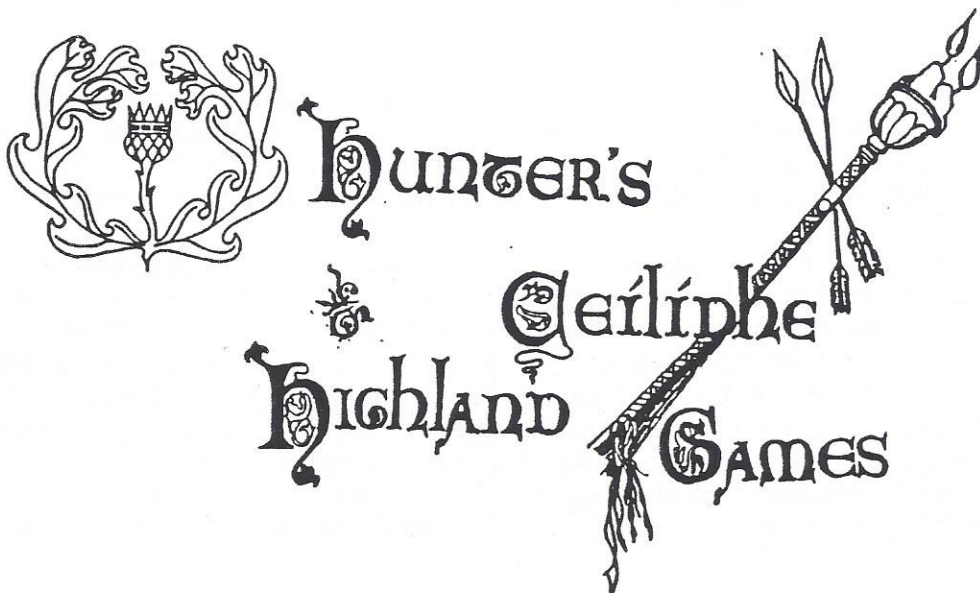 Hunter's
Ceílídhe
Highland
Games